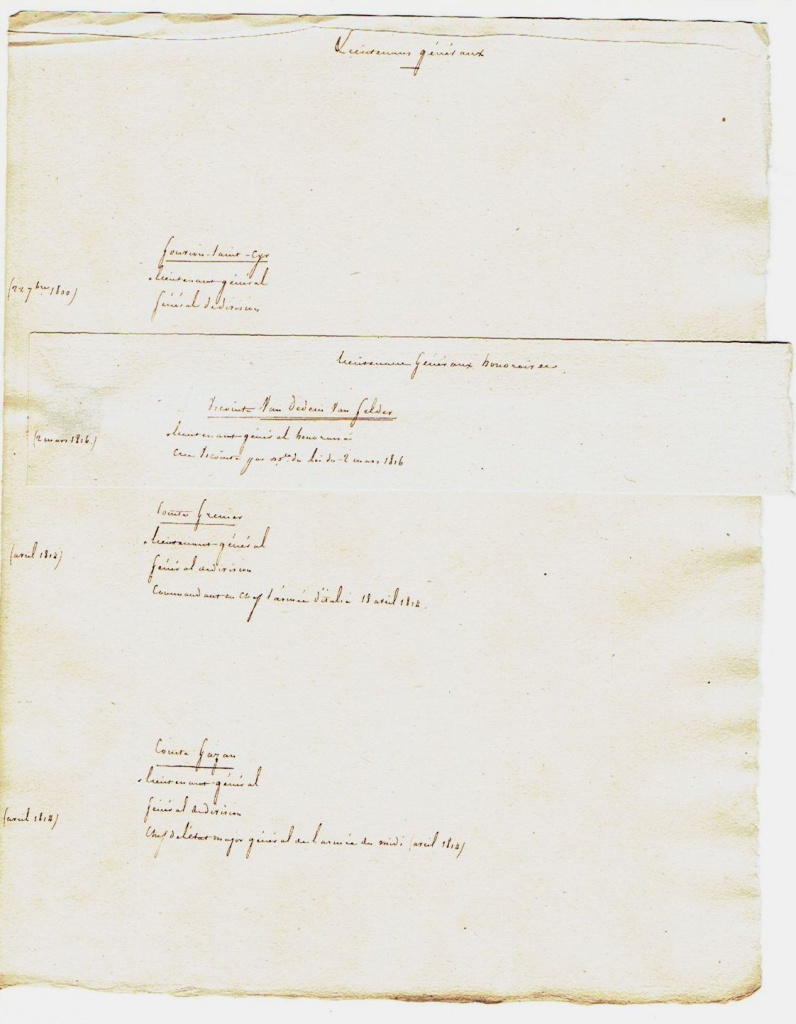 Lieutenans généraux
Gouvion-Saint-Cyr
Lieutenant général
(22 7bre 1800)
Général de division
Lieutenans Généraux honoraires
Vicomte Van Dedem Van Gelder
(2 mars 1816.)
Lieutenant-général honoraire
Créé Vicomte par du Roi du 2 mars 1816
Comte Grenier
Lieutenant-général
(avril 1814)
Général de division
Commandant en chef l'armée d'italie 18 avril 1814.
Comte Gazan
Lieutenant-général
Général de division
(avril 1814)
Chef de l'état major général de l'armée du midi (avril 1814)